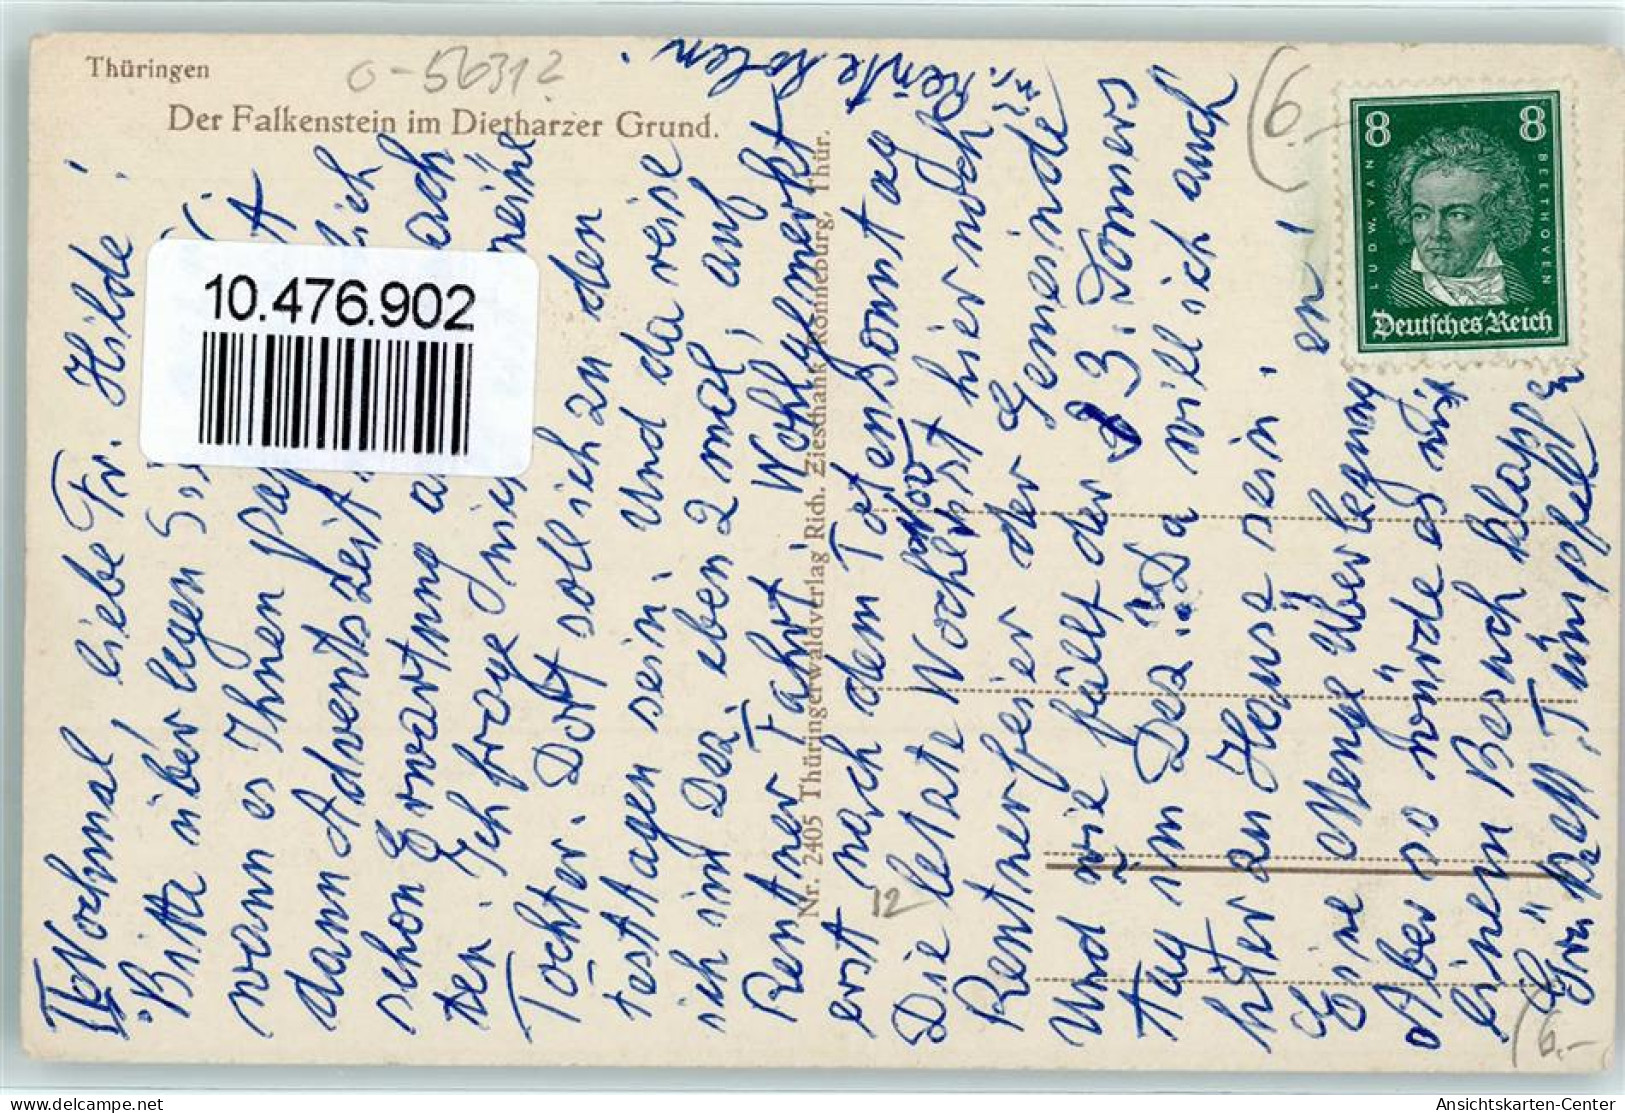 Thüringen
0-56312
Der Falkenstein im Dietharzer Grund.
(6.-
8 8
LUDW. VAN BEETHOVEN
Deutsches Reich
10.476.902
Nr. 2405 Thüringerwaldverlag Rich. Zieschank Ronneburg, Thür.
12
(6.-
II Nochmal, liebe Fr. Hilde!
Bitte überlegen Sie
wann es Ihnen
dann Adventszeit lich
schon Erwartung
den. Ich frage mich
Tochter. Dort soll ich zu den
Festtagen sein. Und da reise
ich im Dez. eben 2 mal, auf
Rentner Fahrt. Wohlgemerkt
erst nach dem Totensonntag
Die letzte Woche ist hier noch
Rentnerfeier der Gemeinde
Und wie fällt der 3. Donners
Tag im Dez.? Da will ich auch
hier zu Hause sein.
Eine Menge Überlegung en!
Aber so würde es mit
einem Besuch klappen
Rente holen.
Ansichtskarten-Center
www.delcampe.net